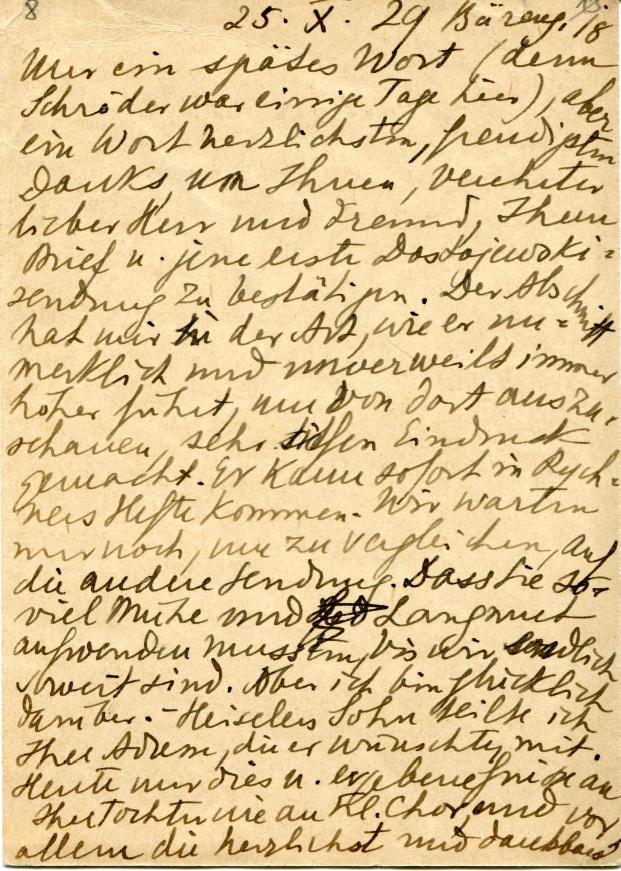 8
25. X. 29 Bäreng. 18
Nur ein spätes Wort (denn
Schröder war einige Tage hier), aber
ein Wort herzlichsten, freudigsten
Danks, um Ihnen, verehrter
lieber Herr und Freund, Ihren
Brief u. jene erste Dostojewski-
sendung zu bestätigen. Der Abschnitt
hat mir in der Art, wie er un-
merklich und unverweilt immer
höher führt, um von dort auszu-
schauen, sehr tiefen Eindruck
gemacht. Er kann sofort in Rych-
ners Hefte kommen. Wir warten
nur noch, um zu vergleichen, auf
die andere Sendung. Dass Sie so-
viel Mühe und Langmut
aufwenden mussten, bis wir endlich
soweit sind. Aber ich bin glücklich
darüber. - Heiselers Sohn teilte ich
Ihre Adresse, die er wünschte, mit.
Heute nur dies u. ergebenes an
Ihre Tochter wie an Frl. Chor, und vor
allem die herzlichst und dankbars